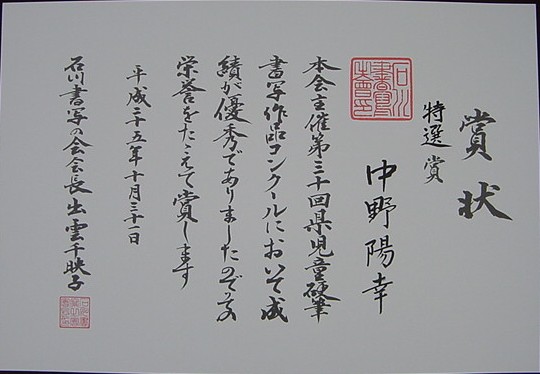 賞状
特選賞
中野陽幸
本会主催第三十回県児童硬筆
書写作品コンクールにおいて成
績が優秀でありましたのでその
栄誉をたたえて賞します
平成二十五年十月三十一日
石川書写の会会長 出雲千映子
石川書写の会印